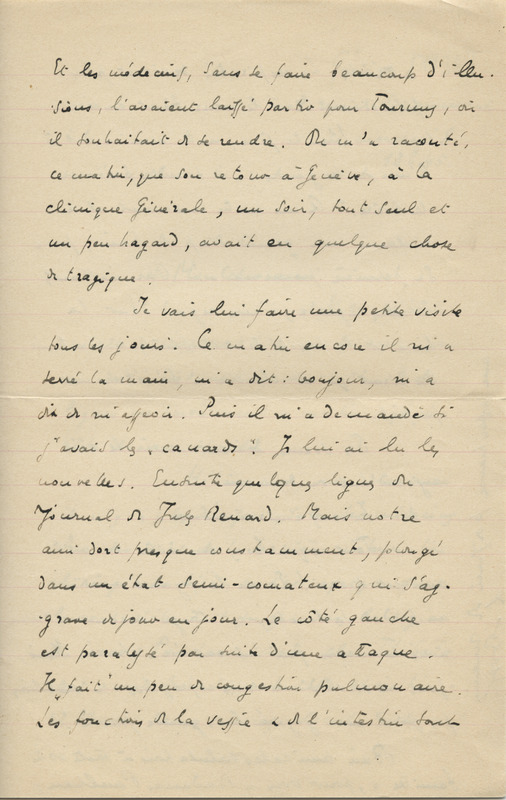 Et les médecins, sans se faire beaucoup d'illu-
sions, l'avaient laissé partir pour Tournus, où
il souhaitait de se rendre. On m'a raconté,
ce matin, que son retour à Genève, à la
clinique Générale, un soir, tout seul et
un peu hagard, avait eu quelque chose
de tragique.
Je vais lui faire une petite visite
tous les jours. Ce matin encore il m'a
serré la main, m'a dit : bonjour, m'a
dit de m'asseoir. Puis il m'a demandé si
j'avais les "canards". Je lui ai lu les
nouvelles. Ensuite quelques lignes du
Journal de Jules Renard. Mais notre
ami dort presque constamment, plongé
dans un état semi-comateux qui s'ag-
-grave de jour en jour. Le côté gauche
est paralysé par suite d'une attaque.
Il "fait" un peu de congestion pulmonaire.
Les fonctions de la vessie & de l'intestin sont